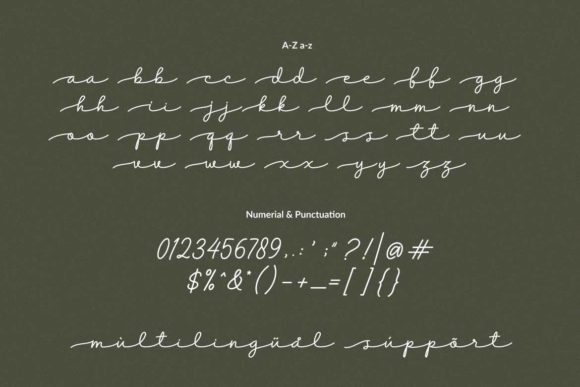 A-Z a-z
aa bb cc dd ee ff gg
hh ii jj kk ll mm nn
oo pp qq rr ss tt uu
vv ww xx yy zz
Numerial & Punctuation
0123456789,.:';"?!|@#
$%^&*()-+_=[]{}
mùltilingüål súppõrt